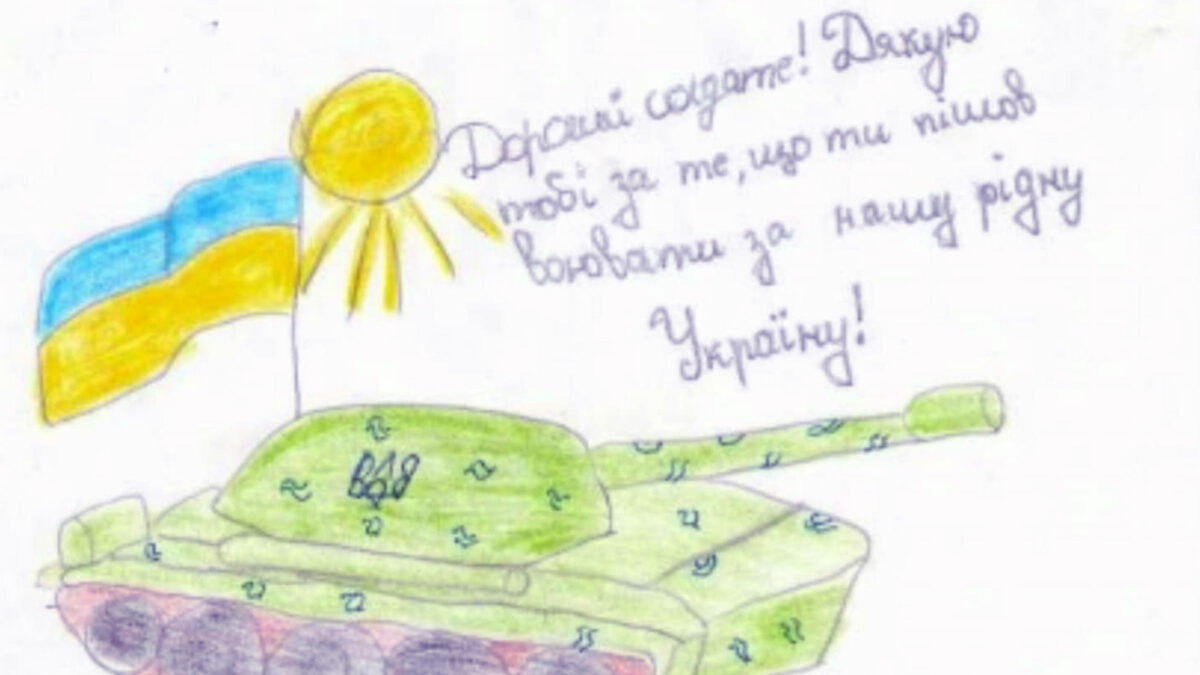 Дорогий солдате! Дякую
тобі за те, що ти пішов
воювати за нашу рідну
Україну!